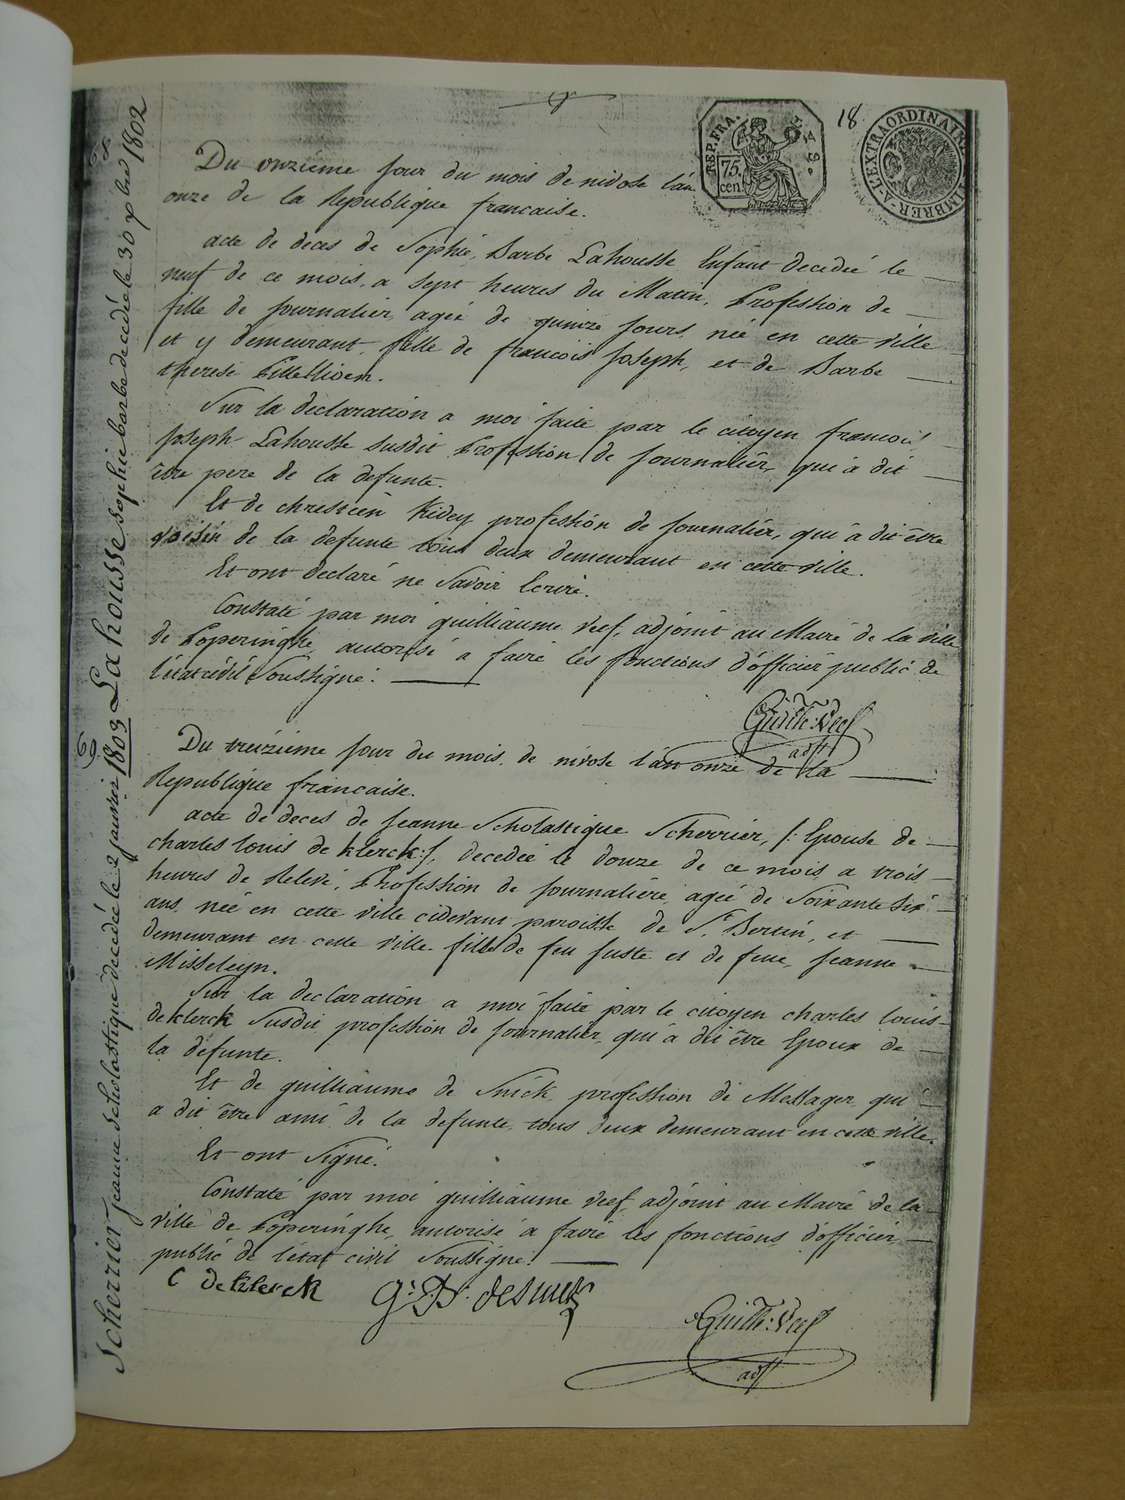 18.
REP. FRA.
75.
cen.
A L'EXTRAORDINAIRE
TIMBRER
Du onziéme jour du mois de nivose l'an
onze de la Republique francaise.
acte de déces de Sophie Barbe Lahousse Enfant decedée le
neuf de ce mois, a sept heures du Matin, Profession de
fille de Journalier, agée de quinze jours, née en cette ville
et y demeurant, fille de francois Joseph, et de Barbe
therese
Sur la declaration a moi faite par le citoyen francois
Joseph Lahousse susdit Profession de Journalier, qui à dit
être pere de la defunte.
Et de chrestien Kidey profession de Journalier, qui à dit être
voisin de la defunte tous deux demeurant en cette ville.
Et ont declaré ne savoir Ecrire.
Constaté par moi guilliaume Veef, adjoint au Maire de la ville
de Poperinghe, autorisé a faire les fonctions d'officier public de
l'état civil Soussigné.
Guille: Veef
adjt
Du treiziéme jour du mois de nivose l'an onze de la
Republique francaise.
acte de deces de Jeanne Scholastique Scherrier, /: Epouse de
charles louis de Klerck :/, decedée le douze de ce mois a trois
heures de Relevé, Profession de Journaliére, agée de Soixante Six
ans, née en cette ville cidevant paroisse de St. Bertin, et
demeurant en cette ville fille de feu Juste et de feue, Jeanne
Misseleyn.
Sur la declaration a moi faite par le citoyen charles louis
de Klerck Susdit profession de Journalier, qui à dit être Epoux de
la defunte.
Et de guilliaume de Snick profession de Messager qui
a dit être ami de la defunte, tous deux demeurant en cette ville.
Et ont Signé.
Constaté par moi guilliaume Veef, adjoint au Maire de la
ville de Poperinghe, autorisé a faire les fonctions d'officier
public de l'état civil Soussigné.
C de Klerck
Guille: Veef
adjt
68
Lahousse Sophie barbe decedée le 30 xbre 1802
69
1803
Scherrier Jeanne Scholastique decedée le 2 janvier